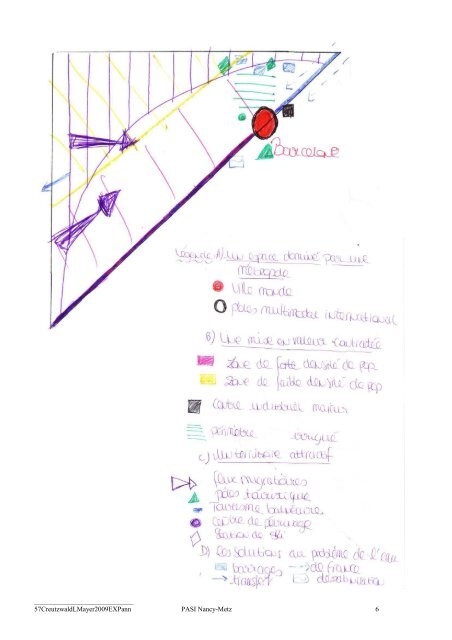 Barcelone
Légende A) Un espace dominé par une
métropole
Ville monde
pôles multimodal international
B) Une mise en valeur contrastée
Zone de forte densité de pop
Zone de faible densité de pop
Centre industriel majeur
périmètre irrigué
C) Un territoire attractif
flux migratoires
pôles touristique
Tourisme balnéaire
Station de ski
D) les solutions au problème de l'eau
barrages de France
transfert désalinisation
57CreutzwaldLMayer2009EXPann PASI Nancy-Metz 6